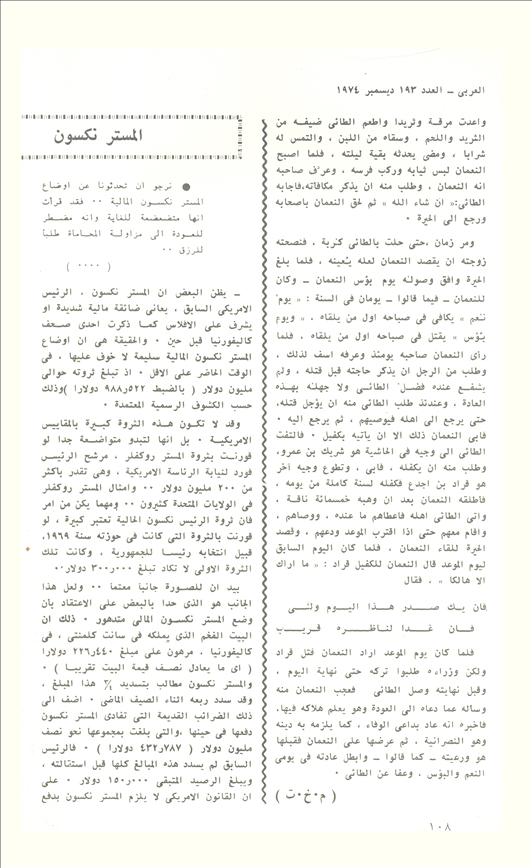 العربي ـ العدد ١٩٣ ديسمبر ١٩٧٤
واعدت مرقة وثريدا واطعم الطائى ضيفه من
الثريد واللحم ، وسقاه من اللبن ، والتمس له
شرابا ، ومضى يحدثه بقية ليلته ، فلما اصبح
النعمان لبس ثيابه وركب فرسه ، وعرّف صاحبه
انه النعمان ، وطلب منه ان يذكر مكافاته،فاجابه
الطائى:« ان شاء الله » ثم لحق النعمان باصحابه
ورجع الى الحيرة ٠
ومر زمان ،حتى حلت بالطائى كربة ، فنصحته
زوجته ان يقصد النعمان لعله يُعينه ، فلما بلغ
الحيرة وافق وصوله يوم بؤس النعمان ـ وكان
للنعمان ـ فيما قالوا ـ يومان فى السنة : « يوم
نعم » يكافى فى صباحه اول من يلقاه ، « ويوم
بؤس » يقتل فى صباحه اول من يلقاه ، فلما
رأى النعمان صاحبه يومئذ وعرفه اسف لذلك ،
وطلب من الرجل ان يذكر حاجته قبل قتله ، ولم
يشفع عنده فضل الطائى ولا جهله بهذه
العادة ، وعندئذ طلب الطائى منه ان يؤجل قتله،
حتى يرجع الى اهله فيوصيهم ، ثم يرجع اليه ٠
فابى النعمان ذلك الا ان ياتيه بكفيل ٠ فالتفت
الطائى الى وجيه فى الحاشية هو شريك بن عمرو،
وطلب منه ان يكفله ، فابى ، وتطوع وجيه آخر
هو قراد بن اجدع فكفله لسنة كاملة من يومه ،
فاطلقه النعمان بعد ان وهبه خمسمائة ناقة ،
واتى الطائى اهله فاعطاهم ما عنده ، ووصاهم ،
واقام معهم حتى اذا اقترب الموعد ودعهم ، وقصد
الحيرة للقاء النعمان ، فلما كان اليوم السابق
ليوم الموعد قال النعمان للكفيل قراد : « ما اراك
الا هالكا » ، فقال
فان يك صدر هذا اليوم ولى
فان غدا لناظره قريب
فلما كان يوم الموعد اراد النعمان قتل قراد
ولكن وزراءه طلبوا تركه حتى نهاية اليوم ،
وقبل نهايته وصل الطائى فعجب النعمان منه
وساله عما دعاه الى العودة وهو يعلم هلاكه فيها،
فاخبره انه عاد بداعى الوفاء ، كما يلزمه به دينه
وهو النصرانية ، ثم عرضها على النعمان فقبلها
هو ورعيته ـ كما قالوا ـ وابطل عادته فى يومى
النعم والبؤس ، وعفا عن الطائى ٠
( م٠خ٠ت )
المستر نكسون
● نرجو ان تحدثونا عن اوضاع
المستر نكسون المالية ٠٠ فقد قرأت
انها متضعضعة للغاية وانه مضطر
للعودة الى مزاولة المحاماة طلبا
للرزق ٠٠
( ٠٠٠٠ )
ـ يظن البعض ان المستر نكسون ، الرئيس
الامريكى السابق ، يعانى ضائقة مالية شديدة او
يشرف على الافلاس كما ذكرت احدى صحف
كاليفورنيا قبل حين ٠ والحقيقة هى ان اوضاع
المستر نكسون المالية سليمة لا خوف عليها ، فى
الوقت الحاضر على الاقل ٠ اذ تبلغ ثروته حوالى
مليون دولار ( بالضبط ٩٨٨٫٥٢٢ دولارا )وذلك
حسب الكشوف الرسمية المعتمدة ٠
وقد لا تكون هذه الثروة كبيرة بالمقاييس
الامريكية ٠ بل انها لتبدو متواضعة جدا لو
قورنت بثروة المستر روكفلر ، مرشح الرئيس
فورد لنيابة الرئاسة الامريكية ، وهى تقدر باكثر
من ٢٠٠ مليون دولار ٠٠ وامثال المستر روكفلر
فى الولايات المتحدة كثيرون ٠٠ ومهما يكن من امر
فان ثروة الرئيس نكسون الحالية تعتبر كبيرة ، لو
قورنت بالثروة التى كانت فى حوزته سنة ١٩٦٩،
قبيل انتخابه رئيسا للجمهورية ، وكانت تلك
الثروة الاولى لا تكاد تبلغ ٣٠٠٫٠٠٠ دولار ٠
بيد ان للصورة جانبا معتما ٠٠ ولعل هذا
الجانب هو الذى حدا بالبعض على الاعتقاد بان
وضع المستر نكسون المالى متدهور ٠ ذلك ان
البيت الفخم الذى يملكه فى سانت كلمنتى ، فى
كاليفورنيا ، مرهون على مبلغ ٢٢٦٫٤٤٠ دولارا
( اى ما يعادل نصف قيمة البيت تقريبا ) ٠
والمستر نكسون مطالب بتسديد هذا المبلغ ،
وقد سدد ربعه اثناء الصيف الماضى ٠ اضف الى
ذلك الضرائب القديمة التى تفادى المستر نكسون
دفعها فى حينها ،والتى بلغت بمجموعها نحو نصف
مليون دولار ( ٤٣٢٫٧٨٧ دولارا ) ٠ فالرئيس
السابق لم يسدد هذه المبالغ كلها قبل استقالته ،
ويبلغ الرصيد المتبقى ١٥٠٫٠٠٠ دولار ٠ على
ان القانون الامريكى لا يلزم المستر نكسون بدفع
١٠٨